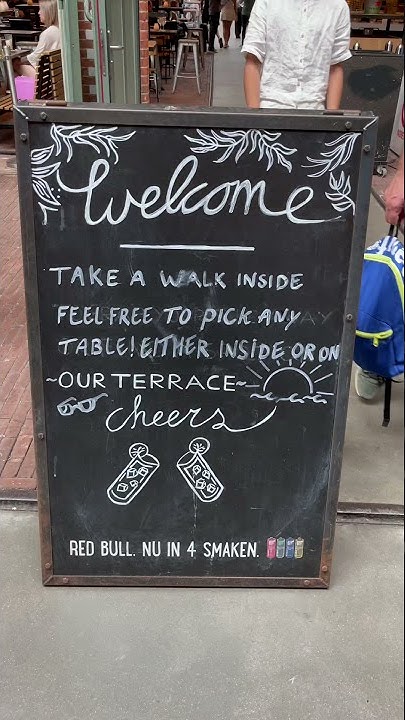 Welcome
TAKE A WALK INSIDE
FEEL FREE TO PICK ANY
TABLE! EITHER INSIDE OR ON
~OUR TERRACE~
cheers
RED BULL. NU IN 4 SMAKEN.